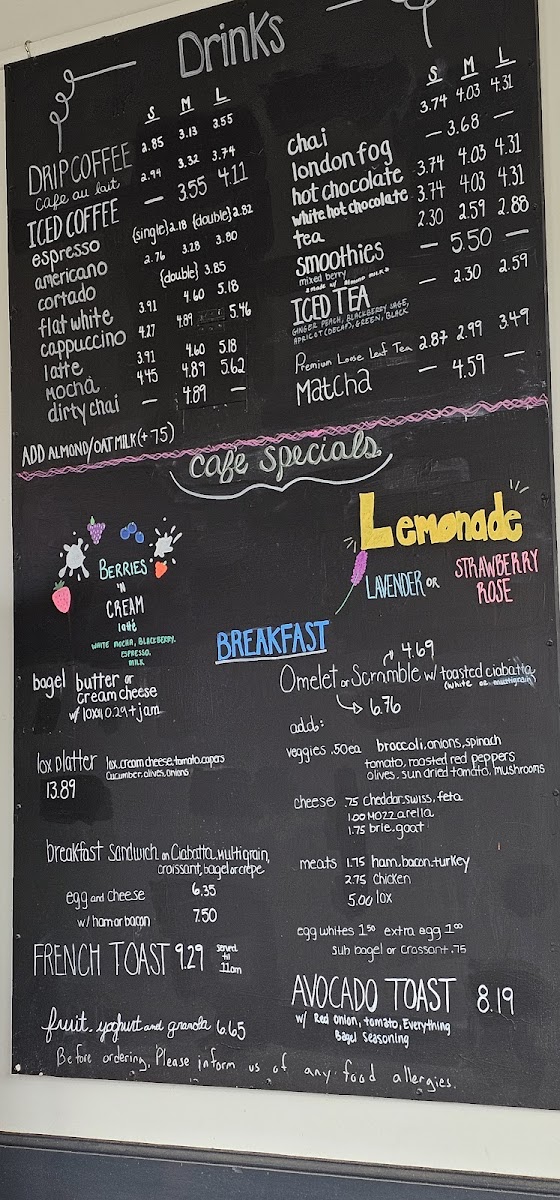 Drinks
S M L
DRIP COFFEE 2.85 3.13 3.55
Cafe au lait 2.94 3.32 3.74
ICED COFFEE — 3.55 4.11
espresso (single) 2.18 (double) 2.82
americano 2.76 3.28 3.80
cortado (double) 3.85
flat white 3.91 4.60 5.18
cappuccino 4.27 4.89 5.46
latte 3.91 4.60 5.18
Mocha 4.45 4.89 5.62
dirty chai — 4.89 —
ADD ALMOND/OAT MILK (+75)
S M L
chai 3.74 4.03 4.31
london fog — 3.68 —
hot chocolate 3.74 4.03 4.31
white hot chocolate 3.74 4.03 4.31
tea 2.30 2.59 2.88
smoothies — 5.50 —
mixed berry
ICED TEA — 2.30 2.59
GINGER PEACH, BLACKBERRY SAGE,
APRICOT (DECAF), GREEN, BLACK
Premium Loose Leaf Tea 2.87 2.99 3.49
Matcha — 4.59 —
cafe specials
BERRIES
'N
CREAM
latté
WHITE MOCHA, BLACKBERRY.
ESPRESSO.
MILK
Lemonade
LAVENDER OR STRAWBERRY
ROSE
BREAKFAST
bagel butter or
cream cheese
w/ lox 10.29 + jam
lox platter lox, cream cheese, tomato, capers
Cucumber, olives, onions
13.89
breakfast sandwich on Ciabatta, multigrain,
croissant, bagel or crepe
egg and cheese 6.35
w/ ham or bacon 7.50
FRENCH TOAST 9.29 served
til
11am
fruit, yoghurt and granola 6.65
4.69
Omelet or Scramble w/ toasted ciabatta
(white or multigrain)
6.76
add:
veggies .50ea broccoli, onions, spinach
tomato, roasted red peppers
olives, sun dried tomato, mushrooms
cheese .75 cheddar, swiss, feta
1.00 Mozzarella
1.75 brie, goat
meats 1.75 ham, bacon, turkey
2.75 chicken
5.00 lox
egg whites 1.50 extra egg 1.00
sub bagel or crossant .75
AVOCADO TOAST 8.19
w/ Red onion, tomato, Everything
Bagel Seasoning
Before ordering, Please inform us of any food allergies.